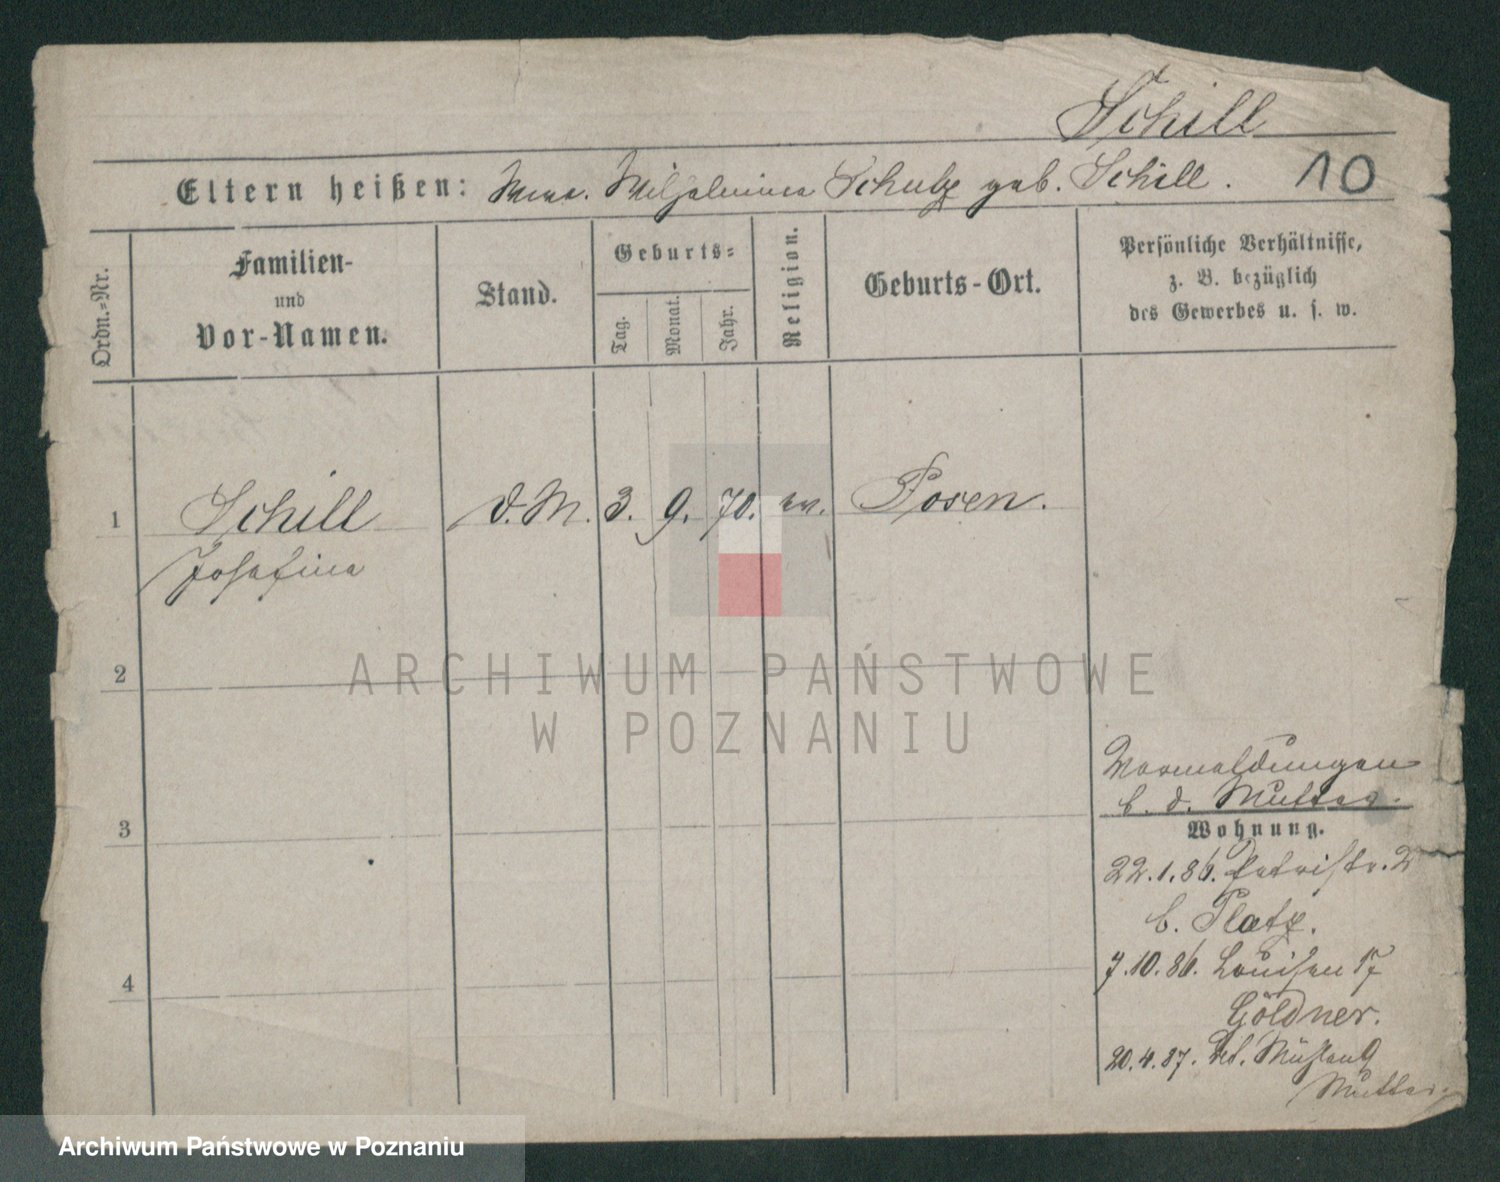 Schill
Eltern heißen: Wwe. Wilhelmine Schulz geb. Schill. 10
Ordn.-Nr.
Familien-
und
Vor-Namen.
Stand.
Geburts-
Tag.
Monat.
Jahr.
Religion.
Geburts-Ort.
Persönliche Verhältnisse,
z. B. bezüglich
des Gewerbes u. s. w.
1 Schill d. M. 3. 9. 70. ev. Posen.
Josefine
2
ARCHIWUM PAŃSTWOWE
W POZNANIU
Vormeldungen
b. d. Mutter.
3
Wohnung.
22.1.86. Petristr. 2
b. Platz.
7.10.86. Louisen 17
4
Göldner.
20.4.87. Mühlen 9
Mutter.
Archiwum Państwowe w Poznaniu